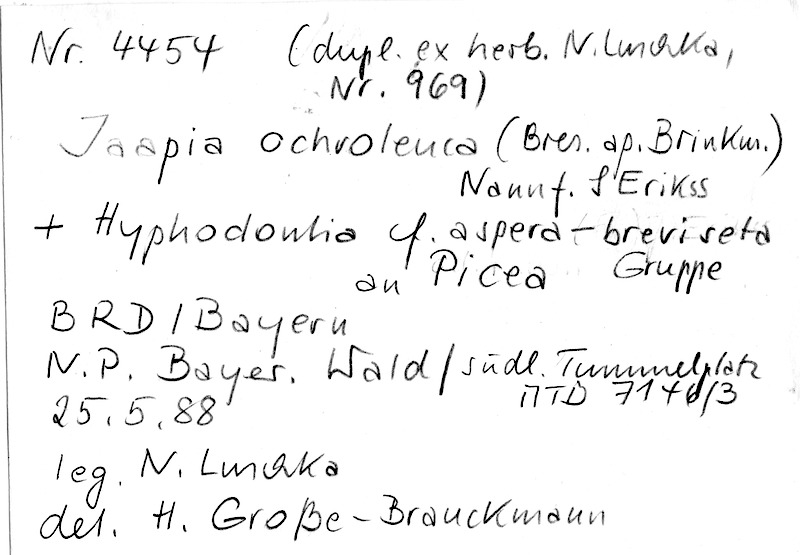 Nr. 4454 (dupl. ex herb. N. Luschka,
Nr. 969)
Jaapia ochroleuca (Bres. ap. Brinkm.)
Nannf. & Erikss
+ Hyphodontia cf. aspera-breviseta
an Picea Gruppe
BRD / Bayern
N.P. Bayer. Wald / südl. Tummelplatz
MTB 7146/3
25.5.88
leg. N. Luschka
det. H. Große-Brauckmann